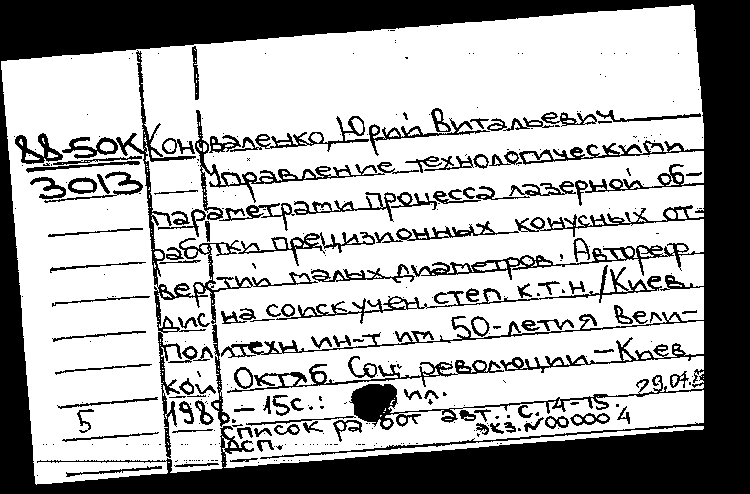 88-50К Коноваленко, Юрий Витальевич.
3013 Управление технологическими
параметрами процесса лазерной об-
работки прецизионных конусных от-
верстий малых диаметров: Автореф.
дис. на соиск. учен. степ. к.т.н. /Киев.
Политехн. ин-т им. 50-летия Вели-
кой Октяб. Соц. революции. – Киев,
1988. – 15с.: ил. 29.04.
5 Список работ авт.: с. 14-15.
ДСП. экз. N00000 4